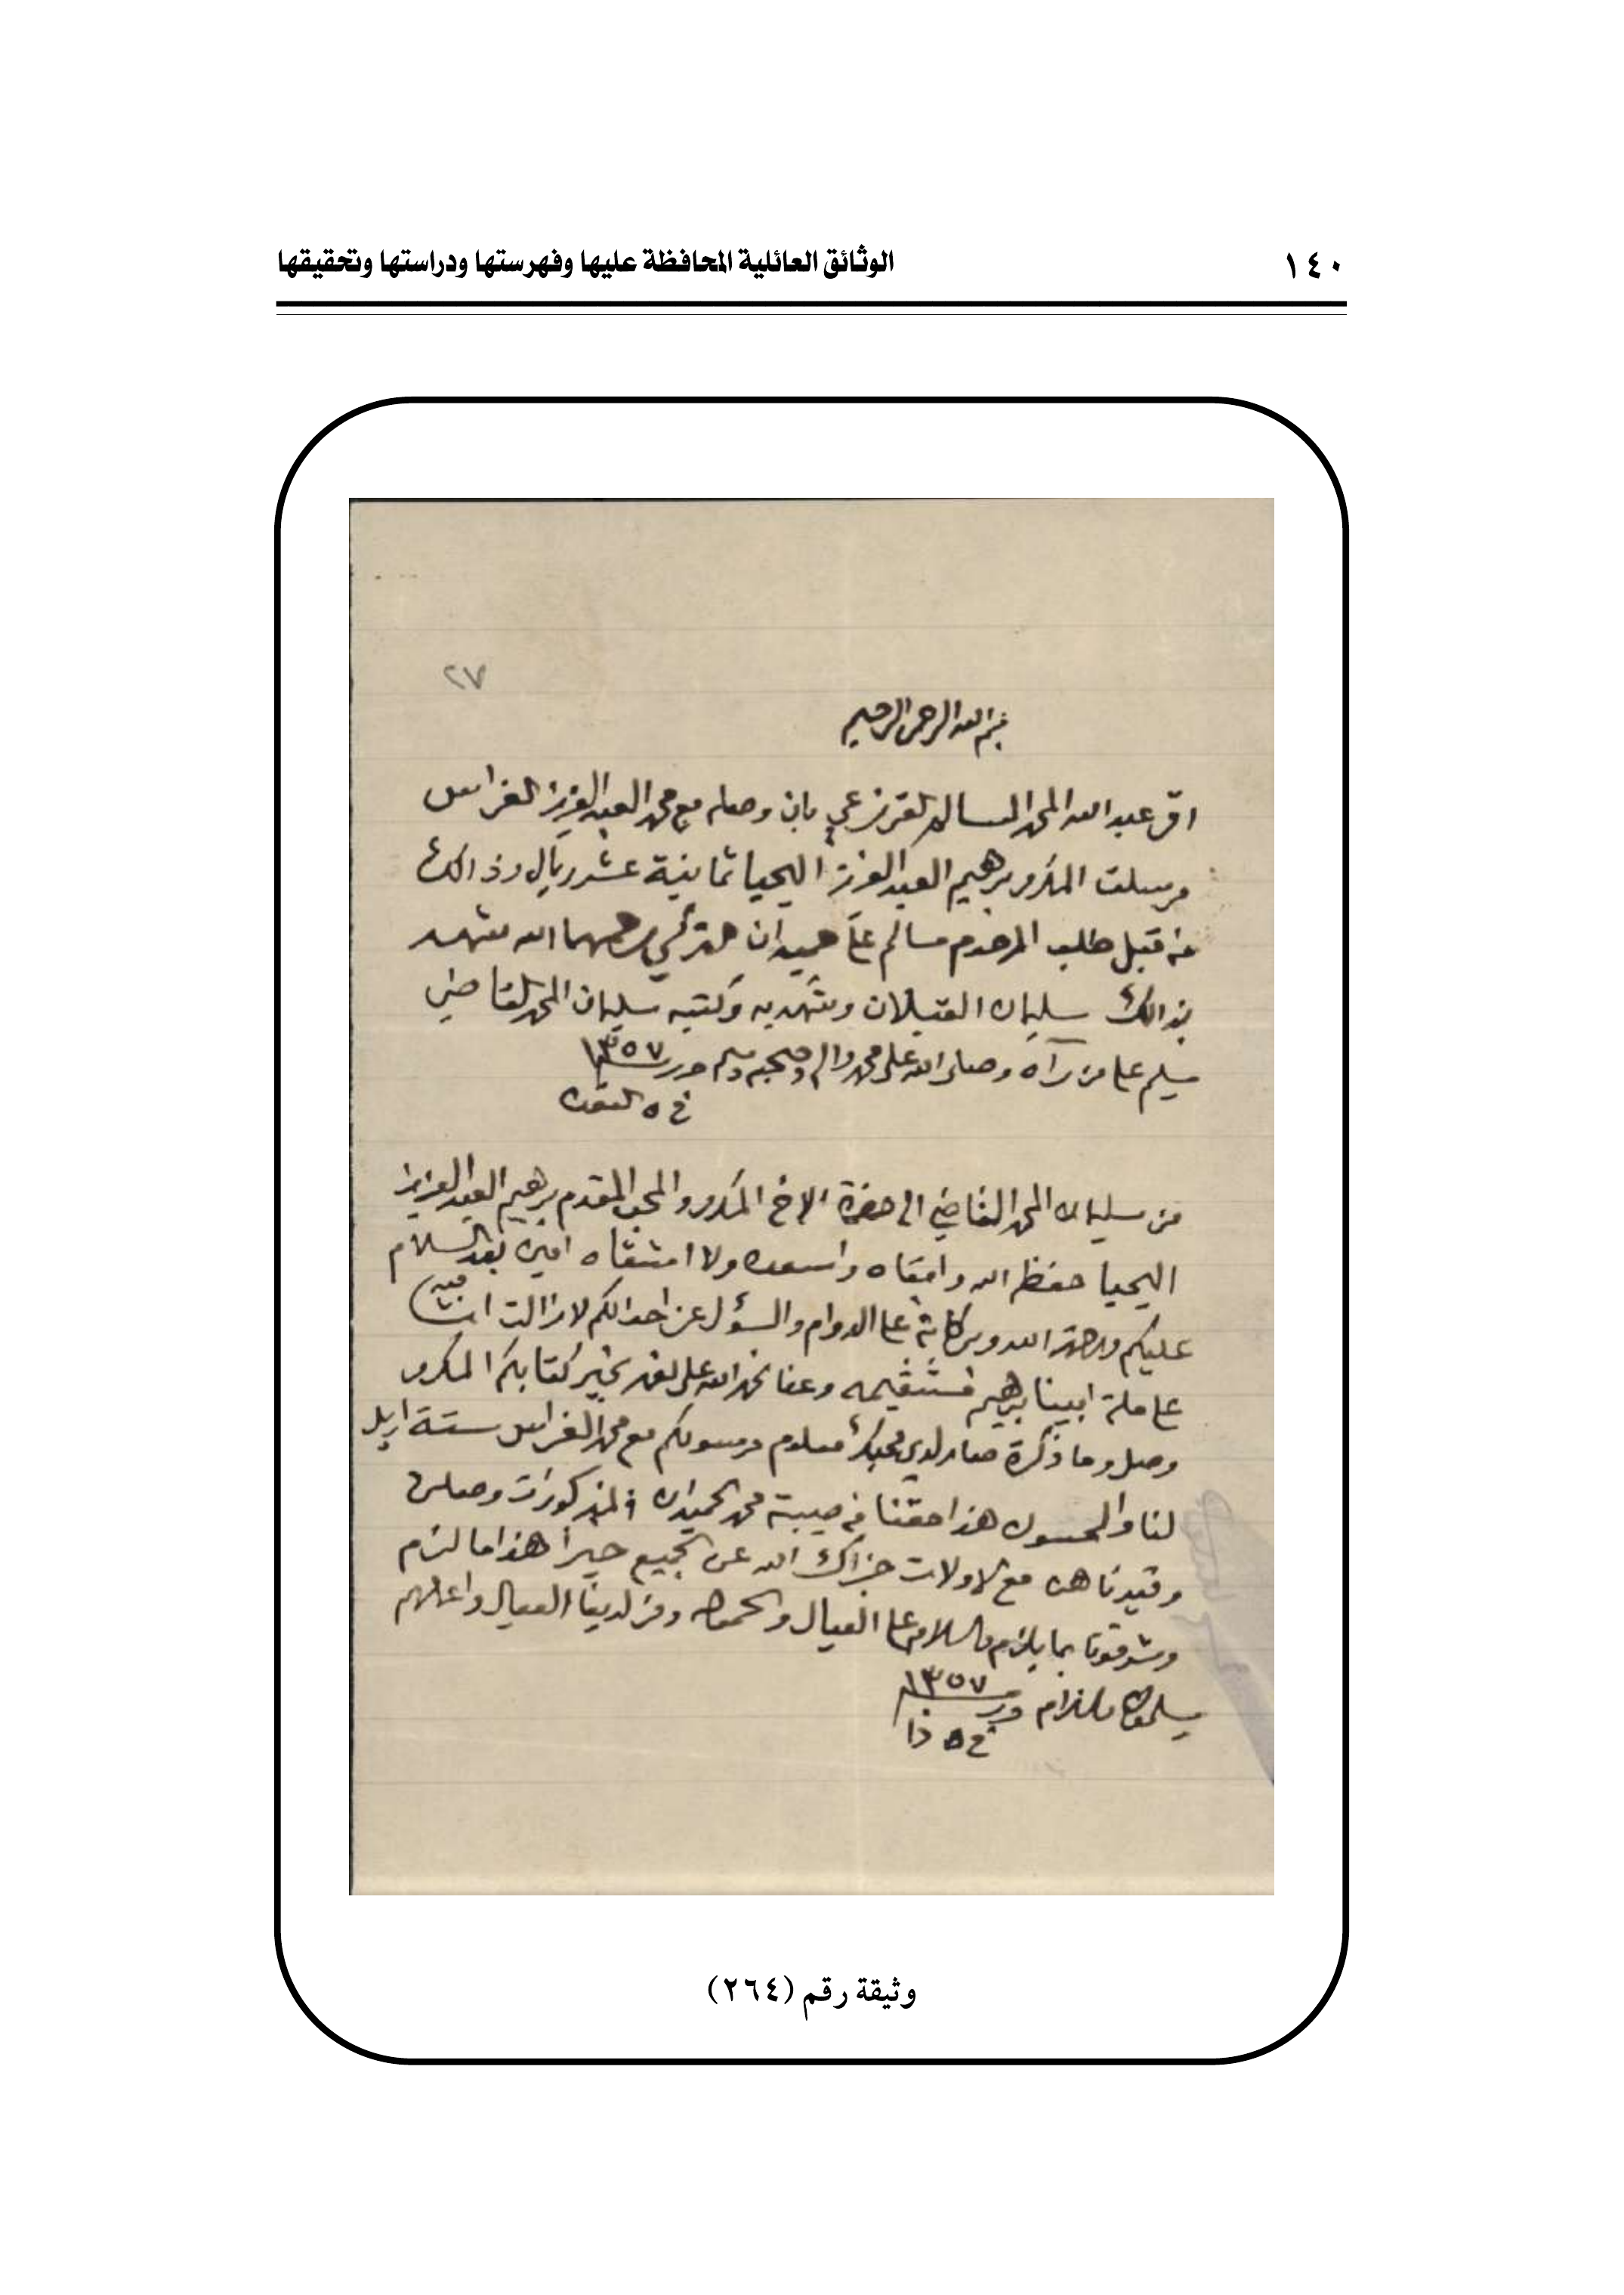 ١٤٠ الوثائق العائلية المحافظة عليها وفهرستها ودراستها وتحقيقها
٢٧
بسم الله الرحمن الرحيم
اقر عبدالله المحمد السالم القرزعي بان وصله مع محمد العبدالعزيز الفراس
مرسلت المكرم برهيم العبدالعزيز اليحيا ثمانية عشر ريال وذالك
من قبل طلب المرحوم سالم على حميدان التركي رحمهما الله شهد
بذالك سليمان القبلان وشهد به وكتبه سليمان المحمد القاضي
مسلم على من رآه وصلى الله على محمد واله وصحبه وسلم حرر ١٣٥٧
في ٥ القعده
من سليمان المحمد القاضي الى حضرة الاخ المكرم والمحب المقدم برهيم العبدالعزيز
اليحيا حفظه الله وابقاه واسعده ولا اشقاه امين بعد السلام
عليكم ورحمة الله وبركاته على الدوام والسؤل عن احوالكم لا زالت
على ملة ابينا برهيم مستقيمه وعنا نحمد الله على نعمه بخير كتابكم المكرم
وصل وما ذكرة صار لدى محبك معلوم مرسولكم مع محمد الفراس ستة اريل
لنا والمحسون هذا حقنا من صيبة محمد الحميدان المذكورات وصلن
وقيدناهن مع الاولات جزاك الله عن الجميع خيرا هذا ما لزم
وشرفونا بما يلزم والسلام على العيال والحموله ومن لدينا العيال واعمامهم
يسلمون والسلام حرر ١٣٥٧
في ٥ ذا
وثيقة رقم (٢٦٤)